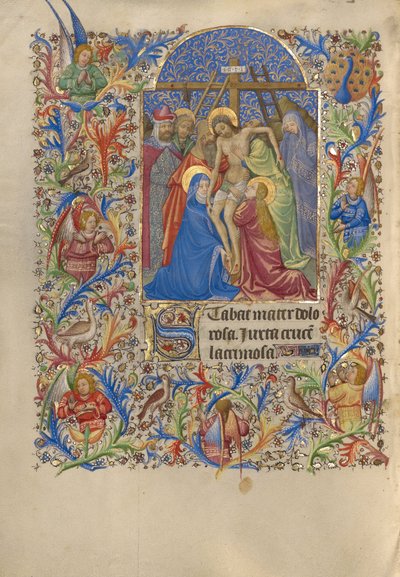 INRI
Stabat mater dolo
rosa. Juxta crucē
lacrimosa.